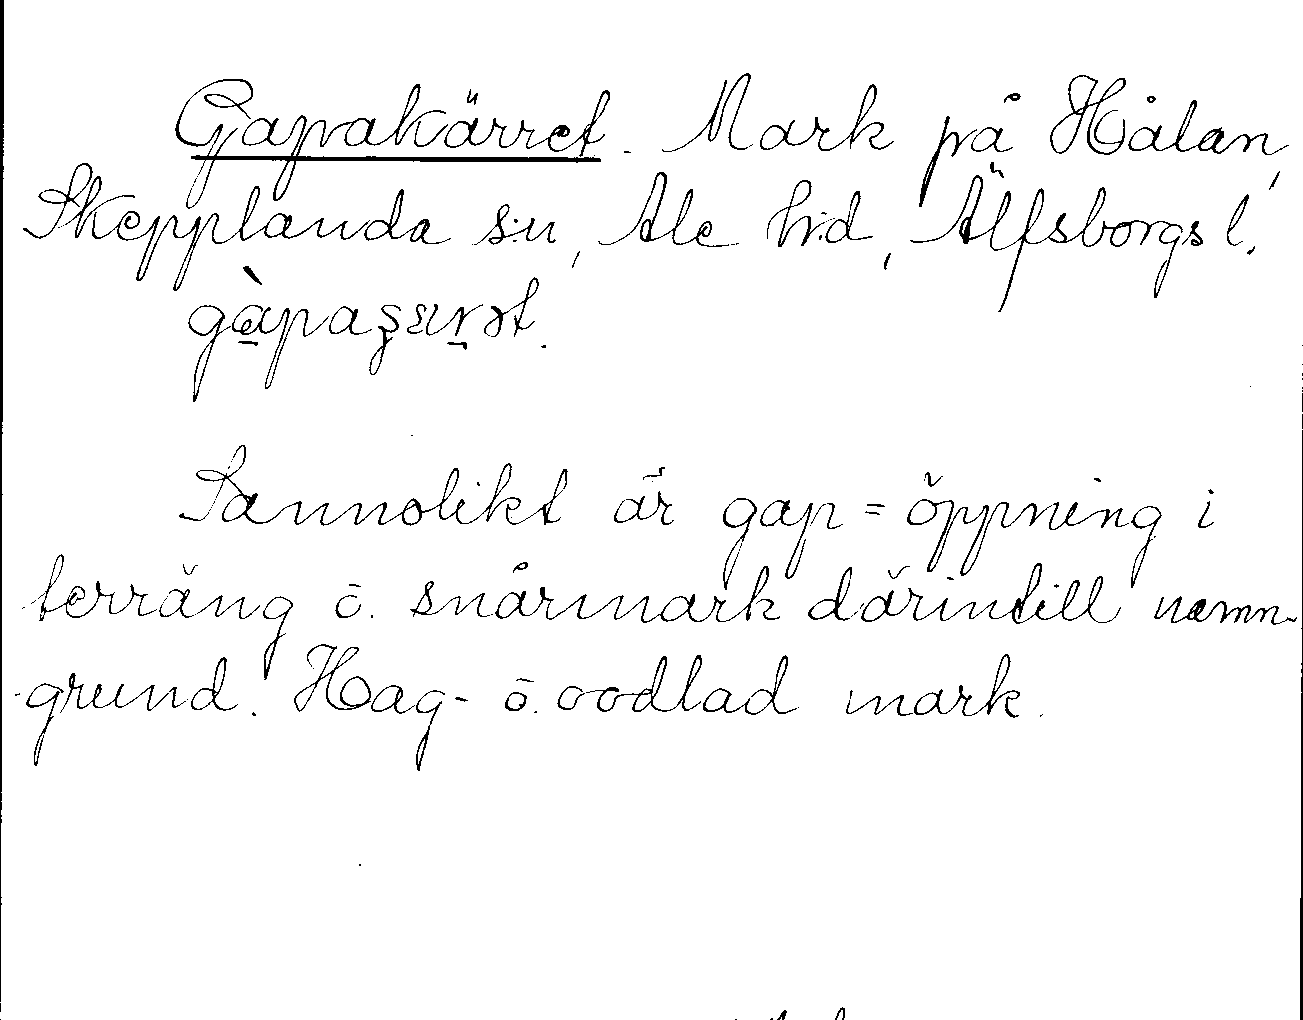 Gapakärret. Mark på Hålan,
Skepplanda s:n, Ale h:d, Älfsborgs l.
Sannolikt är gap = öppning i
terräng o. snårmark därintill namn-
-grund. Hag- o. oodlad mark.